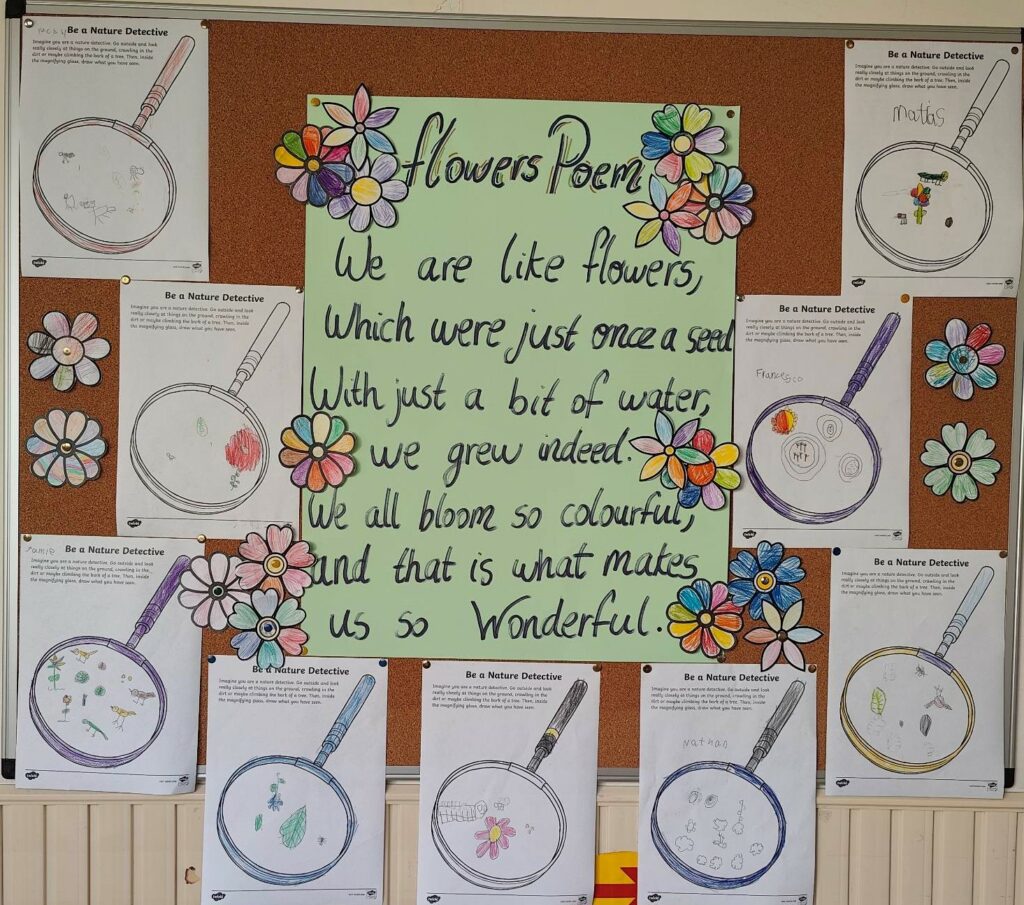 flowers Poem
We are like flowers,
Which were just once a seed
With just a bit of water,
we grew indeed.
We all bloom so colourful,
and that is what makes
us so Wonderful.
Be a Nature Detective
Imagine you are a nature detective. Go outside and look
really closely at things on the ground, crawling in the
dirt or maybe climbing the bark of a tree. Then, inside
the magnifying glass, draw what you have seen.
Be a Nature Detective
Imagine you are a nature detective. Go outside and look
really closely at things on the ground, crawling in the
dirt or maybe climbing the bark of a tree. Then, inside
the magnifying glass, draw what you have seen.
Matias
Be a Nature Detective
Imagine you are a nature detective. Go outside and look
really closely at things on the ground, crawling in the
dirt or maybe climbing the bark of a tree. Then, inside
the magnifying glass, draw what you have seen.
Be a Nature Detective
Imagine you are a nature detective. Go outside and look
really closely at things on the ground, crawling in the
dirt or maybe climbing the bark of a tree. Then, inside
the magnifying glass, draw what you have seen.
Francesco
Be a Nature Detective
Imagine you are a nature detective. Go outside and look
really closely at things on the ground, crawling in the
dirt or maybe climbing the bark of a tree. Then, inside
the magnifying glass, draw what you have seen.
Be a Nature Detective
Imagine you are a nature detective. Go outside and look
really closely at things on the ground, crawling in the
dirt or maybe climbing the bark of a tree. Then, inside
the magnifying glass, draw what you have seen.
Be a Nature Detective
Imagine you are a nature detective. Go outside and look
really closely at things on the ground, crawling in the
dirt or maybe climbing the bark of a tree. Then, inside
the magnifying glass, draw what you have seen.
Be a Nature Detective
Imagine you are a nature detective. Go outside and look
really closely at things on the ground, crawling in the
dirt or maybe climbing the bark of a tree. Then, inside
the magnifying glass, draw what you have seen.
Be a Nature Detective
Imagine you are a nature detective. Go outside and look
really closely at things on the ground, crawling in the
dirt or maybe climbing the bark of a tree. Then, inside
the magnifying glass, draw what you have seen.
Nathan